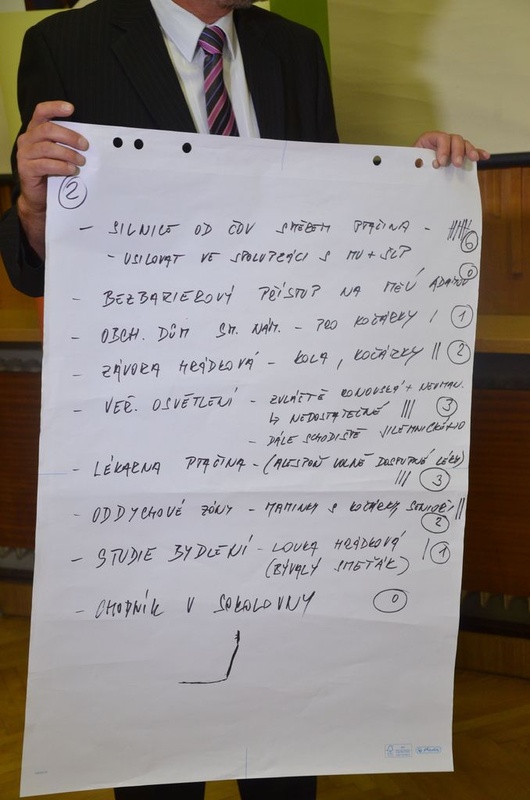 2
- SILNICE OD ČOV SMĚREM PTÁČINA - 6
- USILOVAT VE SPOLUPRÁCI S MU +
- BEZBARIEROVÝ PŘÍSTUP NA MEÚ 0
- OBCH. DŮM SM. NÁM. - PRO KOČÁRKY / 1
- ZÁVORA HRÁDKOVÁ - KOLA, KOČÁRKY || 2
- VEŘ. OSVĚTLENÍ - ZVLÁŠTĚ RONOVSKÁ + NEUMAN.
↳ NEDOSTATEČNÉ ||| 3
- DÁLE SCHODIŠTĚ JILEMNICKÉHO
- LÉKÁRNA PTÁČINA - (ALESPOŇ VOLNĚ DOSTUPNÉ LÉKY)
||| 3
- ODDYCHOVÉ ZÓNY - MAMINKY S KOČÁRKY, SENIOŘI ||
2
- STUDIE BYDLENÍ - LOUKA HRÁDKOVÁ / 1
(BÝVALÝ SMEŤÁK)
- CHODNÍK V SOKOLOVNY 0